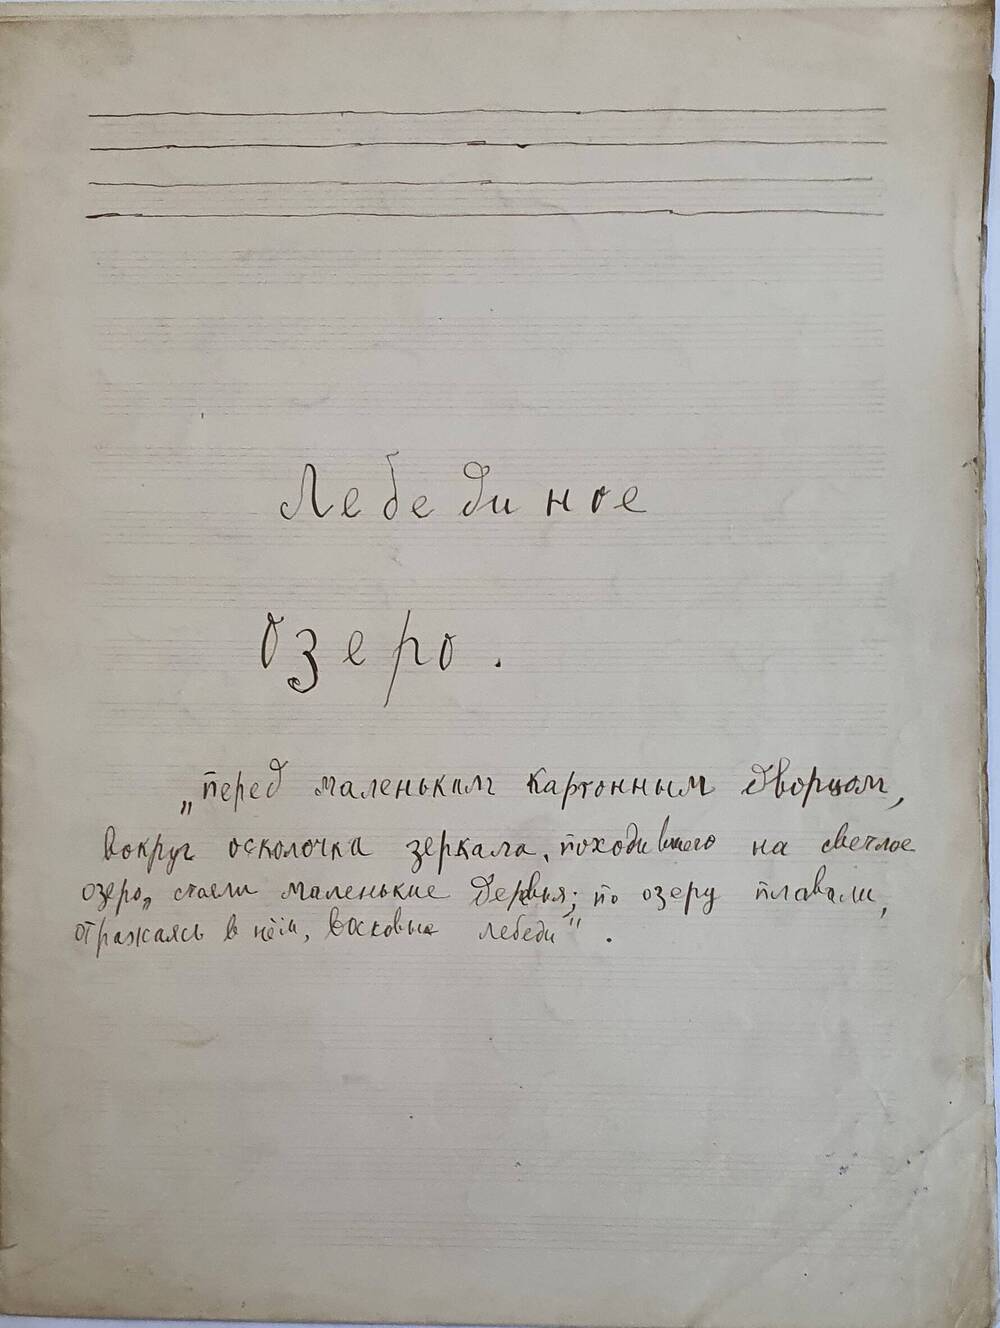 Лебединое
озеро.
„перед маленьким картонным дворцом,
вокруг осколочка зеркала, походившего на светлое
озеро„ стояли маленькие деревья; по озеру плавали,
отражаясь в нём, восковые лебеди“.